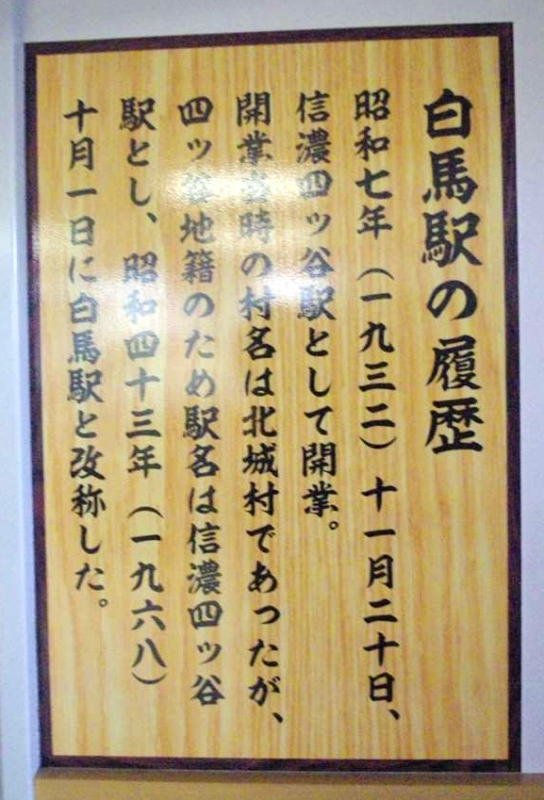 白馬駅の履歴
昭和七年（一九三二）十一月二十日、
信濃四ツ谷駅として開業。
開業当時の村名は北城村であったが、
四ッ谷地籍のため駅名は信濃四ッ谷
駅とし、昭和四十三年（一九六八）
十月一日に白馬駅と改称した。